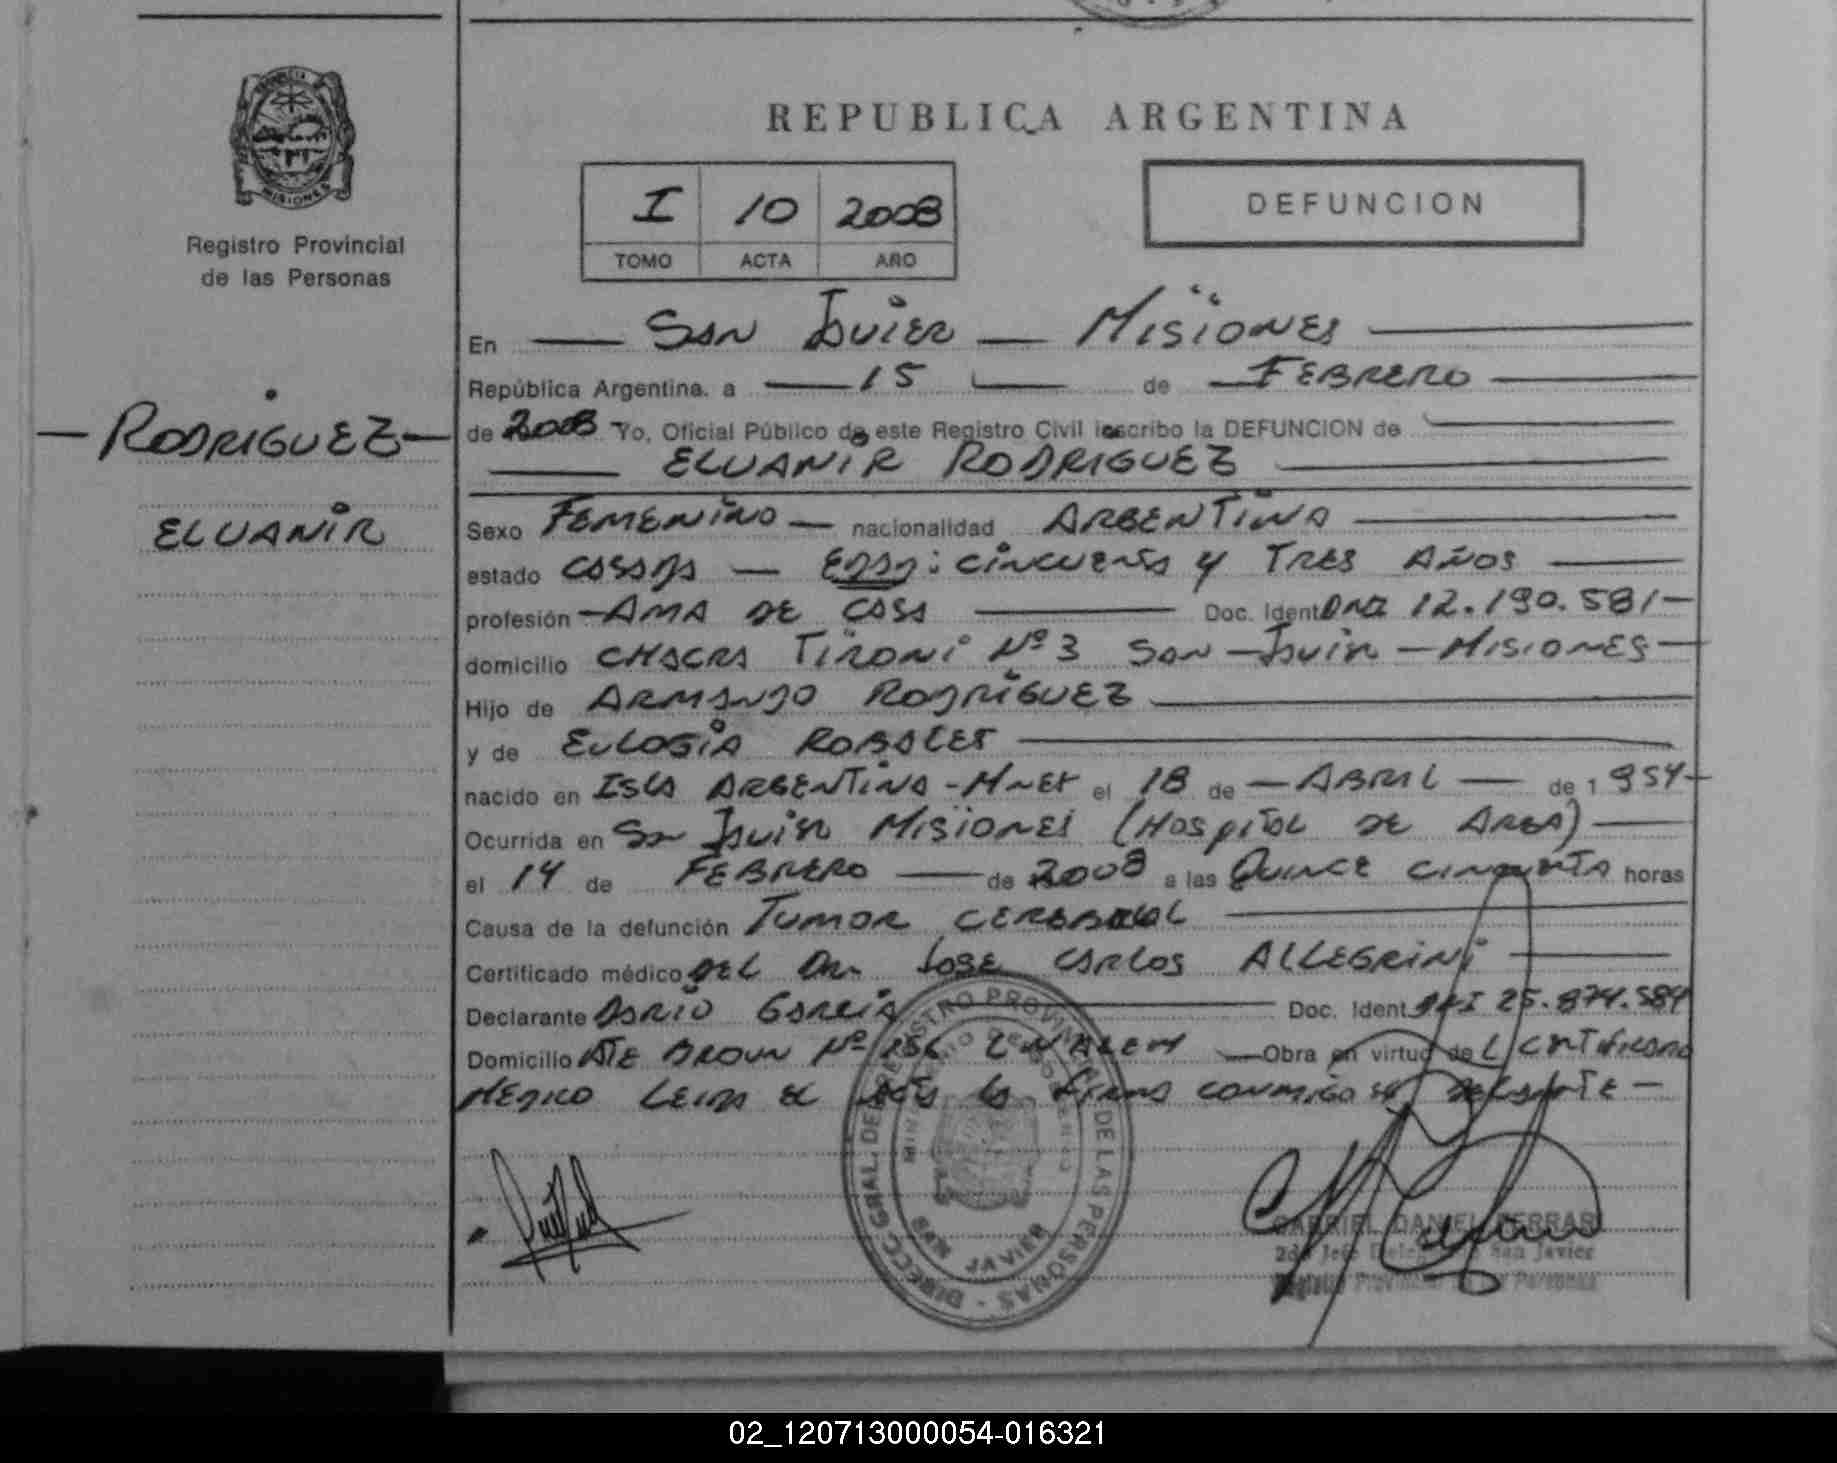 PROVINCIA
MISIONES
Registro Provincial
de las Personas
RODRIGUEZ
ELUANIR
REPUBLICA ARGENTINA
I 10 2008
TOMO ACTA AÑO
DEFUNCION
En San Javier — Misiones
República Argentina. a 15 de FEBRERO
de 2008 Yo, Oficial Público de este Registro Civil inscribo la DEFUNCION de
ELUANIR RODRIGUEZ
Sexo FEMENINO — nacionalidad ARGENTINA
estado CASADA — EDAD: CINCUENTA Y TRES AÑOS
profesión - AMA DE CASA Doc. Ident DNI 12.190.581-
domicilio CHACRA TIRONI Nº 3 San - Javier - MISIONES
Hijo de ARMANDO RODRIGUEZ
y de EULOGIA ROBALES
nacido en ISLA ARGENTINA - Mnes el 18 de - ABRIL - de 1954-
Ocurrida en San Javier MISIONES (HOSPITAL DE AREA)
el 14 de FEBRERO de 2008 a las QUINCE CINCUENTA horas
Causa de la defunción TUMOR CEREBRAL
Certificado médico DEL DR. JOSE CARLOS ALLEGRINI
Declarante DARIO GARCIA Doc. Ident DNI 25.874.584
Domicilio ATE BROWN Nº 256 L N ALEM Obra en virtud del CERTIFICADO
MEDICO LEIDA EL ACTA LA FIRMA CONMIGO EL DECLARANTE -
DIRECC. GRAL. DEL REGISTRO PROVINCIAL DE LAS PERSONAS
MINISTERIO DE GOBIERNO
SAN JAVIER
GABRIEL DANIEL FERRARI
2do Jefe San Javier
Registro Provincial de las Personas
02_120713000054-016321